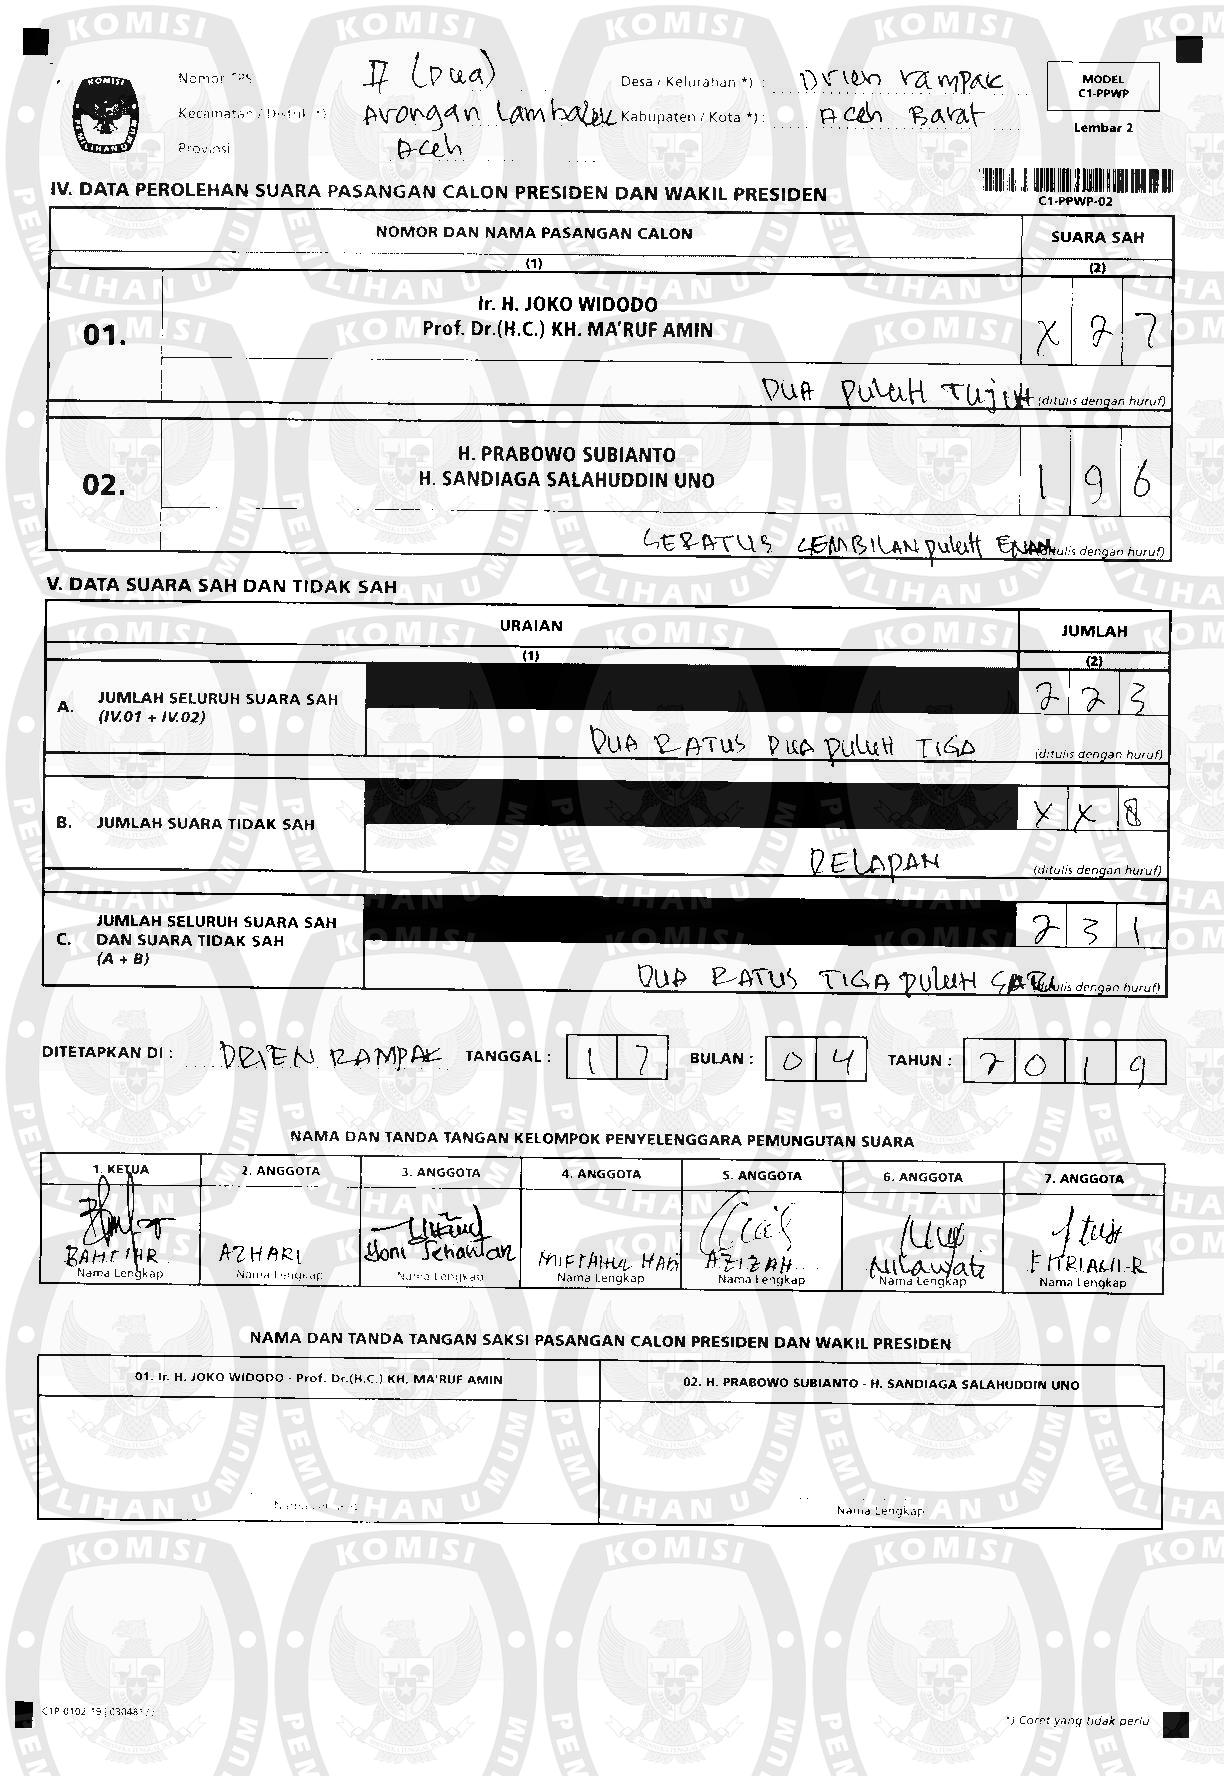 Nomor TPS II (Dua) Desa / Kelurahan *) : Drien rampak
Kecamatan / Distrik *) Arongan Lambalek Kabupaten / Kota *) : Aceh Barat
Provinsi Aceh
MODEL
C1-PPWP
Lembar 2
IV. DATA PEROLEHAN SUARA PASANGAN CALON PRESIDEN DAN WAKIL PRESIDEN
C1-PPWP-02
NOMOR DAN NAMA PASANGAN CALON SUARA SAH
(1) (2)
01. Ir. H. JOKO WIDODO
Prof. Dr.(H.C.) KH. MA'RUF AMIN X 2 7
DUA PULUH TUJUH (ditulis dengan huruf)
02. H. PRABOWO SUBIANTO
H. SANDIAGA SALAHUDDIN UNO 1 9 6
SERATUS SEMBILAN PULUH ENAM (ditulis dengan huruf)
V. DATA SUARA SAH DAN TIDAK SAH
URAIAN JUMLAH
(1) (2)
A. JUMLAH SELURUH SUARA SAH
(IV.01 + IV.02) 2 2 3
DUA RATUS DUA PULUH TIGA (ditulis dengan huruf)
B. JUMLAH SUARA TIDAK SAH X X 8
DELAPAN (ditulis dengan huruf)
C. JUMLAH SELURUH SUARA SAH
DAN SUARA TIDAK SAH
(A + B) 2 3 1
DUA RATUS TIGA PULUH SATU (ditulis dengan huruf)
DITETAPKAN DI : DRIEN RAMPAK TANGGAL : 1 7 BULAN : 0 4 TAHUN : 2 0 1 9
NAMA DAN TANDA TANGAN KELOMPOK PENYELENGGARA PEMUNGUTAN SUARA
1. KETUA 2. ANGGOTA 3. ANGGOTA 4. ANGGOTA 5. ANGGOTA 6. ANGGOTA 7. ANGGOTA
BAHTIAR AZHARI MIFTAHUL AZIZAH Nilawati
Nama Lengkap Nama Lengkap Nama Lengkap Nama Lengkap Nama Lengkap Nama Lengkap Nama Lengkap
NAMA DAN TANDA TANGAN SAKSI PASANGAN CALON PRESIDEN DAN WAKIL PRESIDEN
01. Ir. H. JOKO WIDODO - Prof. Dr.(H.C.) KH. MA'RUF AMIN 02. H. PRABOWO SUBIANTO - H. SANDIAGA SALAHUDDIN UNO
Nama Lengkap
*) Coret yang tidak perlu